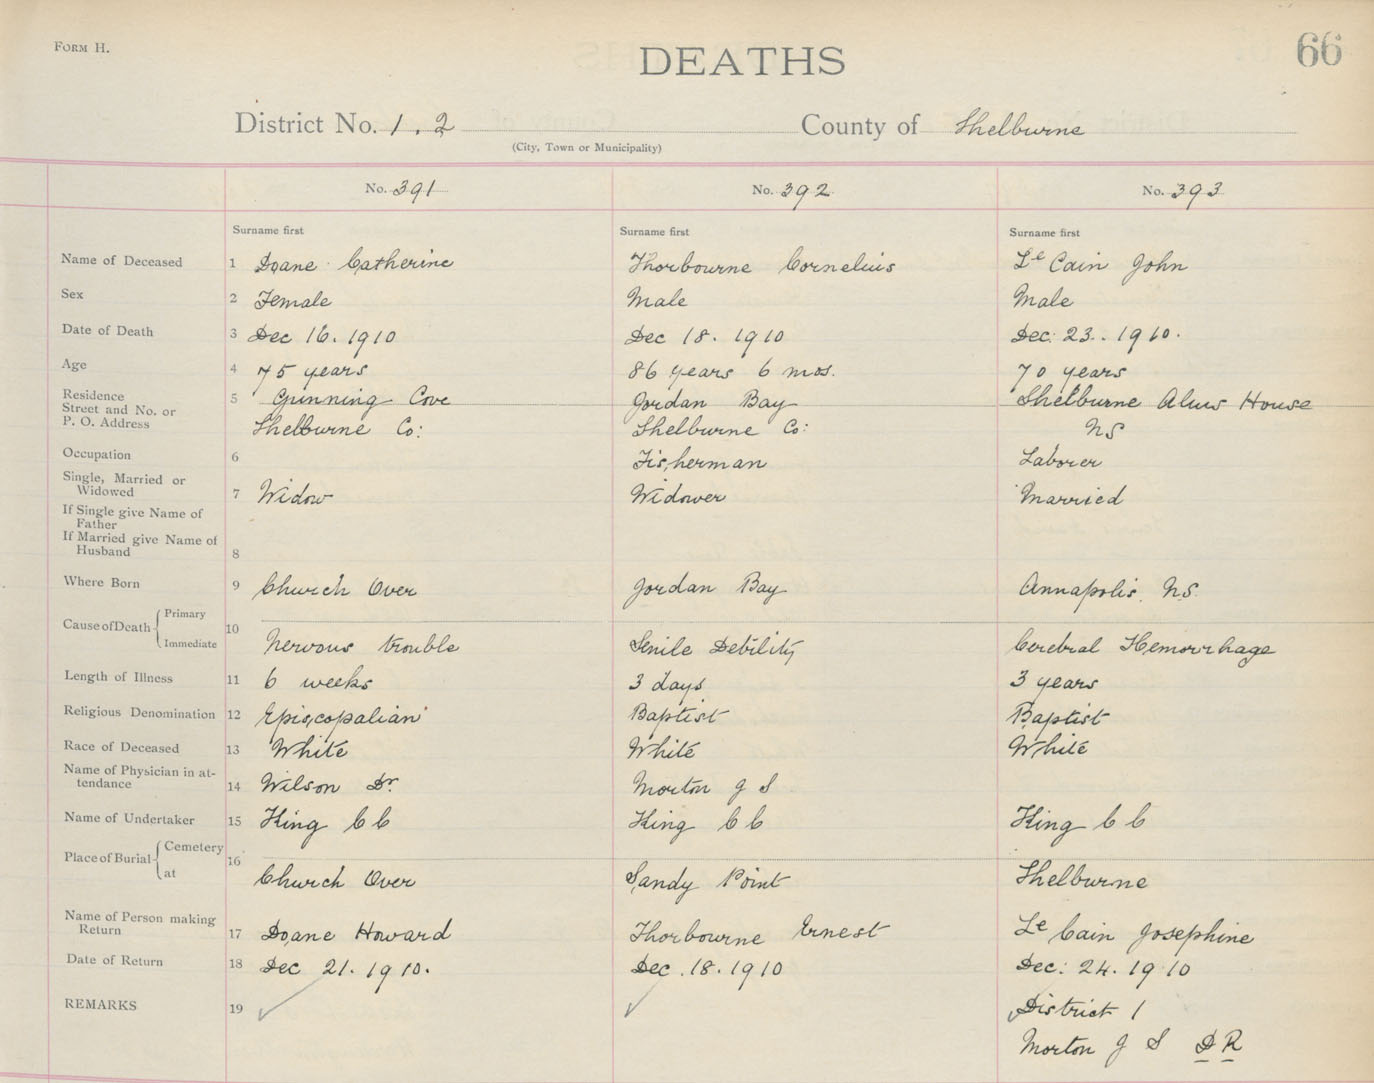 FORM H.
DEATHS
66
District No. 1. 2 County of Shelburne
(City, Town or Municipality)
No. 391 No. 392 No. 393
Surname first Surname first Surname first
Name of Deceased 1 Doane Catherine Thorbourne Cornelius Le Cain John
Sex 2 Female Male Male
Date of Death 3 Dec 16. 1910 Dec 18. 1910 Dec: 23. 1910.
Age 4 75 years 86 years 6 mos. 70 years
Residence Street and No. or P. O. Address 5 Gunning Cove Jordan Bay Shelburne Alms House
Shelburne Co: Shelburne Co: NS
Occupation 6 Fisherman Laborer
Single, Married or Widowed 7 Widow Widower Married
If Single give Name of Father
If Married give Name of Husband 8
Where Born 9 Church Over Jordan Bay Annapolis N.S.
Cause of Death Primary
Immediate 10 Nervous trouble Senile Debility Cerebral Hemorrhage
Length of Illness 11 6 weeks 3 days 3 years
Religious Denomination 12 Episcopalian Baptist Baptist
Race of Deceased 13 White White White
Name of Physician in attendance 14 Wilson Dr. Morton J S
Name of Undertaker 15 King C C King C C King C C
Place of Burial Cemetery 16
at Church Over Sandy Point Shelburne
Name of Person making Return 17 Doane Howard Thorbourne Ernest Le Cain Josephine
Date of Return 18 Dec 21. 1910. Dec. 18. 1910 Dec: 24. 1910
REMARKS 19 District 1
Morton J S D R